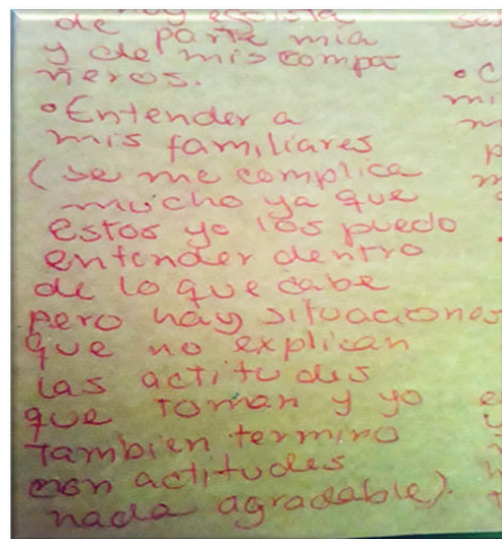 muy egoísta
de parte mia
y de mis compa
ñeros.
• Entender a
mis familiares
(se me complica
mucho ya que
estos yo los puedo
entender dentro
de lo que cabe
pero hay situaciones
que no explican
las actitudes
que toman y yo
tambien termino
con actitudes
nada agradable).